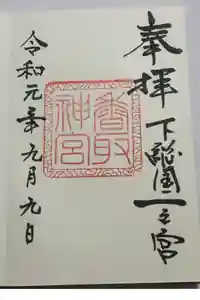 奉拝
下総國一之宮
香取神宮
令和元年九月九日